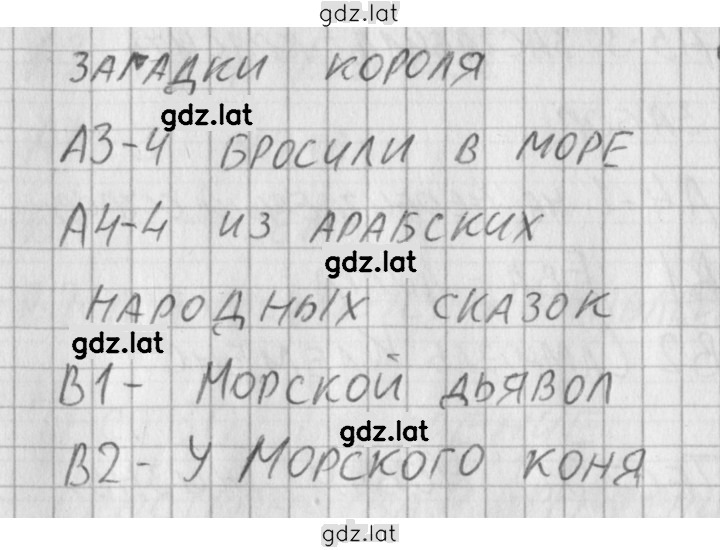 gdz.lat
ЗАГАДКИ КОРОЛЯ
gdz.lat
А3-4 БРОСИЛИ В МОРЕ
А4-4 ИЗ АРАБСКИХ
gdz.lat
НАРОДНЫХ СКАЗОК
gdz.lat
В1- МОРСКОЙ ДЬЯВОЛ
gdz.lat
В2- У МОРСКОГО КОНЯ
gdz.lat